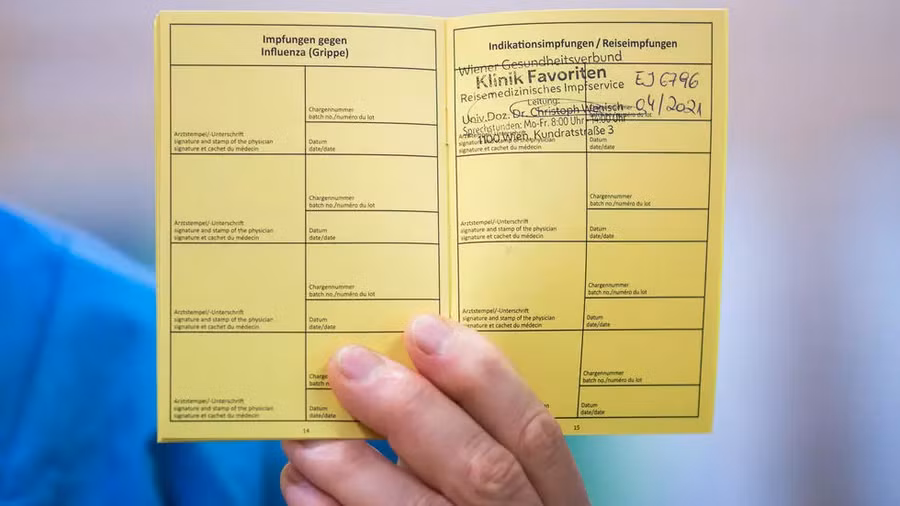 Impfungen gegen
Influenza (Grippe)
Chargennummer
batch no./numéro du lot
Arztstempel/-Unterschrift
signature and stamp of the physician
signature et cachet du médecin
Datum
date/date
Chargennummer
batch no./numéro du lot
Arztstempel/-Unterschrift
signature and stamp of the physician
signature et cachet du médecin
Datum
date/date
Chargennummer
batch no./numéro du lot
Arztstempel/-Unterschrift
signature and stamp of the physician
signature et cachet du médecin
Datum
date/date
Charge
batch n
Arztstempel/-Unterschrift
signature and stamp of the physician
signature et cachet du médecin
Datum
date/date
14
Indikationsimpfungen / Reiseimpfungen
Wiener Gesundheitsverbund
Klinik Favoriten
Reisemedizinisches Impfservice
Leitung:
Univ.Doz. Dr. Christoph Wenisch
Sprechstunden: Mo-Fr. 8:00 Uhr - 14:00 Uhr
1100 Wien, Kundratstraße 3
EJ6796
04/2021
signature et cachet du médecin
Datum
date/date
Chargennummer
batch no./numéro du lot
Arztstempel/-Unterschrift
signature and stamp of the physician
signature et cachet du médecin
Datum
date/date
Chargennummer
batch no./numéro du lot
Arztstempel/-Unterschrift
signature and stamp of the physician
signature et cachet du médecin
Datum
date/date
Chargennummer
batch no./numéro du lot
Datum
date/date
15